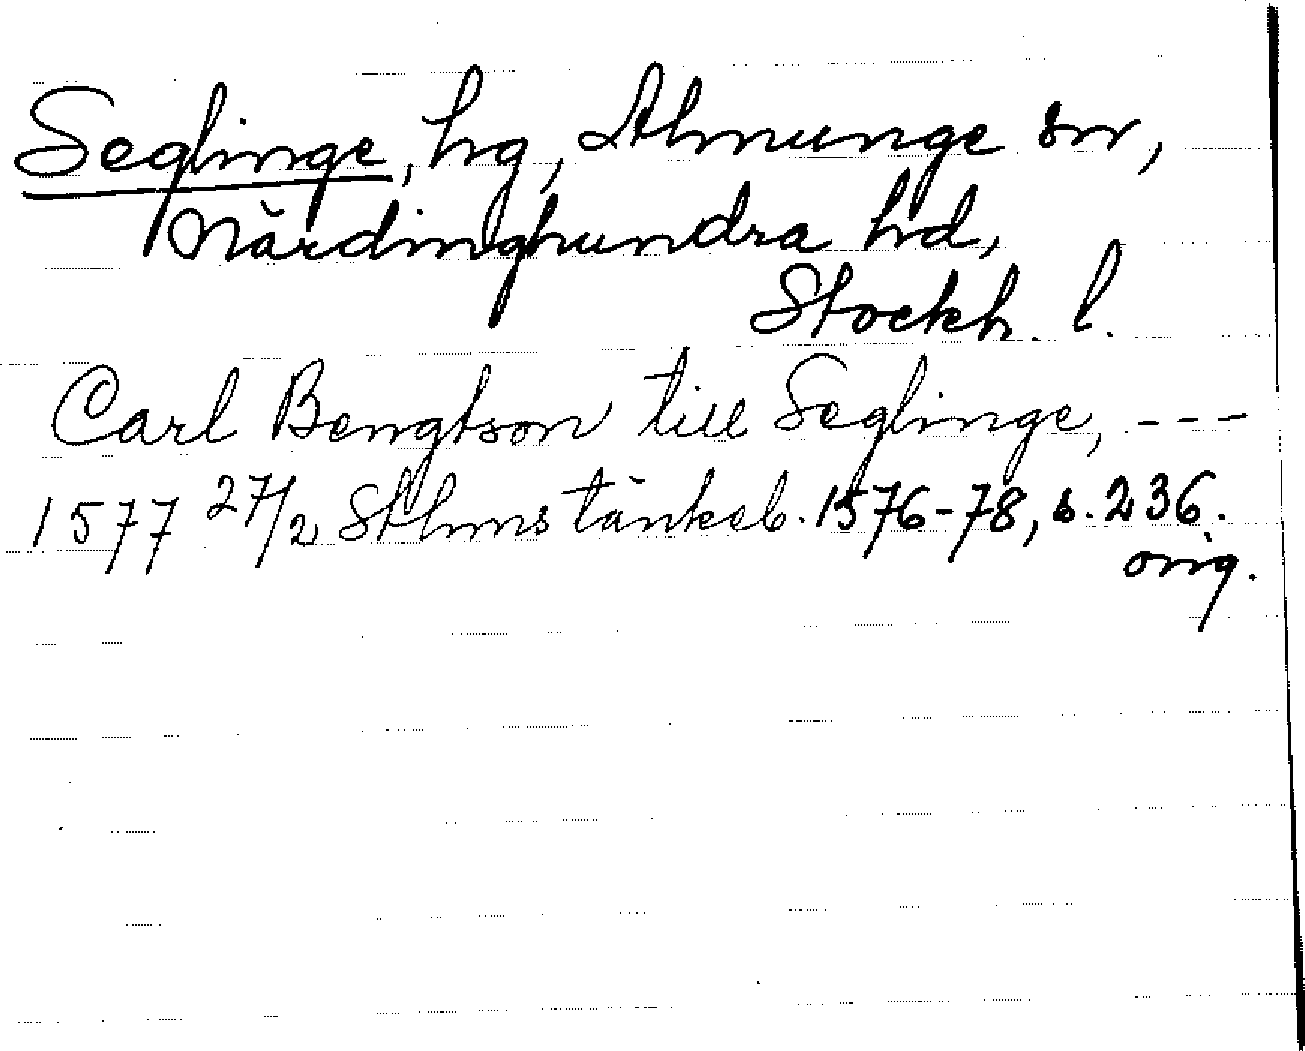 Seglinge, hg, Almunge sn,
Närdinghundra hd,
Stockh. l.
Carl Bengtson till Seglinge, ---
1577 27/2 Sthms tänkeb. 1576-78, s. 236.
orig.